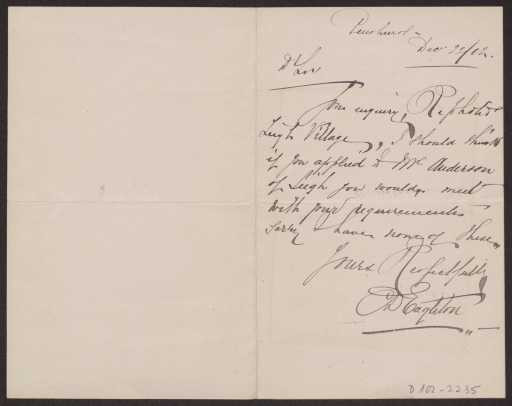 Penshurst
Dec 22/02.
Dr Sir
Your enquiry, Re photos
Leigh Village, I should think
if you applied to Mr Anderson
of Leigh you would meet
with your requirements
Sorry I have none of these
Yours Respectfully
Eagleton
D 102-2235